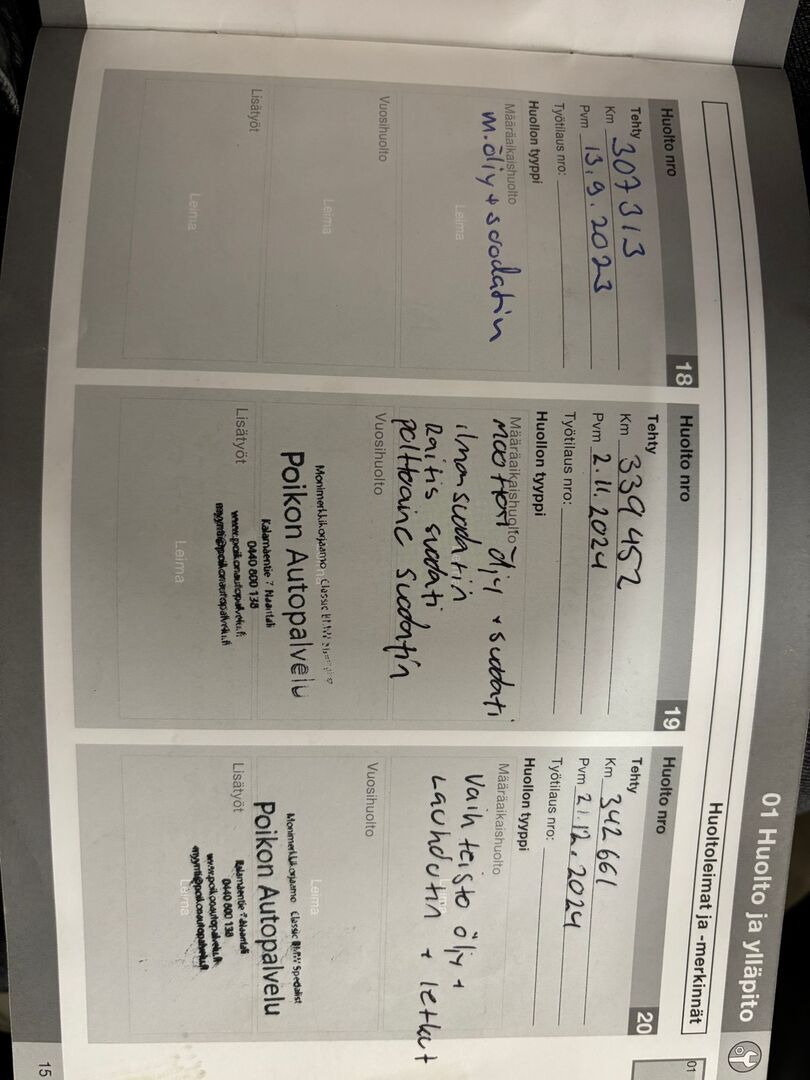 01 Huolto ja ylläpito
Huoltoleimat ja -merkinnät
01
Huolto nro 18
Tehty
Km 307313
Pvm 13.9.2023
Työtilaus nro:
Huollon tyyppi
Määräaikaishuolto
m.öljy + suodatin
Leima
Vuosihuolto
Leima
Lisätyöt
Leima
Huolto nro 19
Tehty
Km 339 452
Pvm 2.11.2024
Työtilaus nro:
Huollon tyyppi
Määräaikaishuolto
moottori öljy + suodati
ilmansuodatin
Raitis suodati
polttoaine suodatin
Vuosihuolto
Monimerkkikorjaamo Classic BMW
Poikon Autopalvelu
Kalamäentie 7 Naantali
0440 800 138
www.poikonautopalvelu.fi
myynti@poikonautopalvelu.fi
Lisätyöt
Leima
Huolto nro 20
Tehty
Km 342 661
Pvm 21.12.2024
Työtilaus nro:
Huollon tyyppi
Määräaikaishuolto
Vaihteisto öljy +
Lauhdutin + letkut
Vuosihuolto
Leima
Monimerkkikorjaamo Classic BMW Spesialist
Poikon Autopalvelu
Kalamäentie 7 Naantali
0440 800 138
www.poikonautopalvelu.fi
myynti@poikonautopalvelu.fi
Lisätyöt
Leima
15